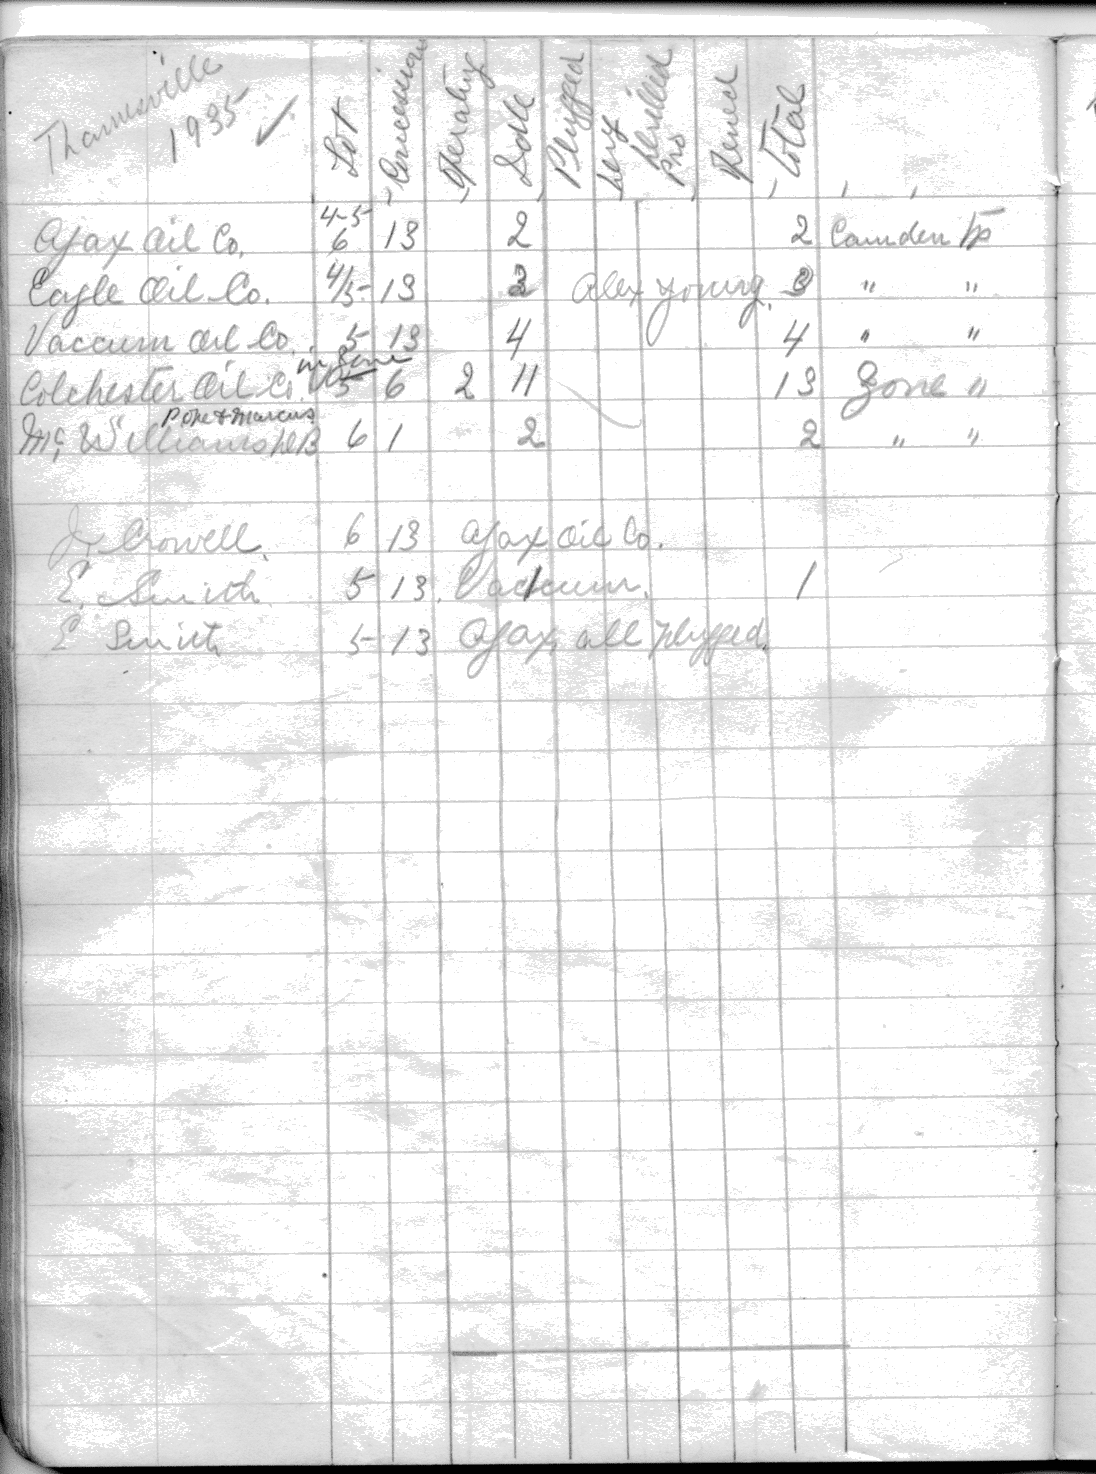 Thamesville
1935 ✓
Lot Concession Operating Idle Plugged Dry Drilled Pro Total
4-5
Ajax Oil Co. 6 13 2 2 Camden Tp
Eagle Oil Co. 4/5 13 3 Alex Young. 3 " "
Vaccum Oil Co. 5 13 4 4 " "
in Zone
Colchester Oil Co. 5 6 2 11 13 Zone "
Pope & Marcus
Mc Williams 6 1 2 2 " "
J. Crowell. 6 13 Ajax Oil Co.
E. Smith 5 13. Vaccum. 1
E Smith 5 13 Ajax, all plugged.